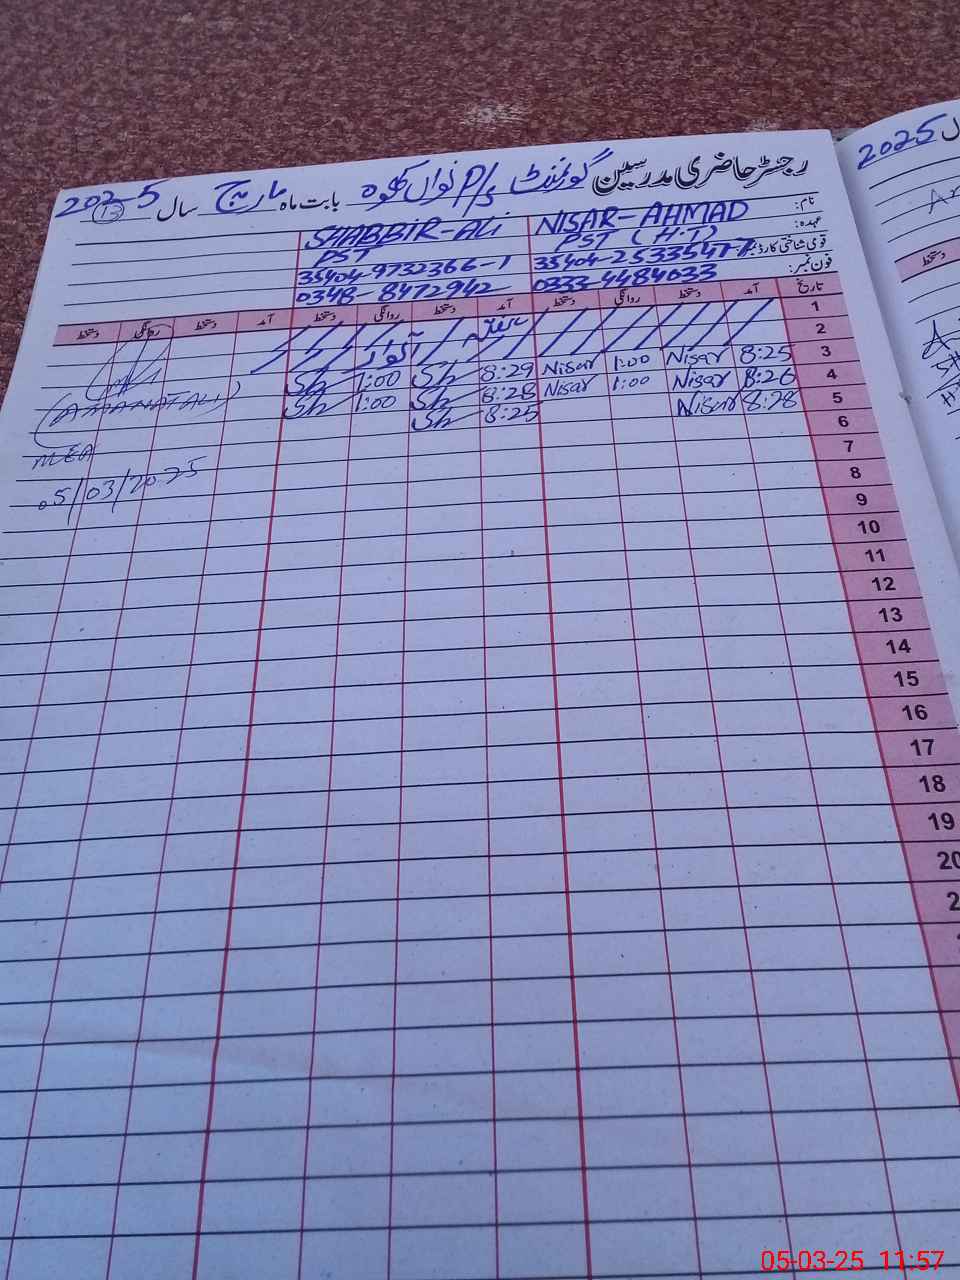 رجسٹر حاضری مدرسین گورنمنٹ P/S نواں کھوہ بابت ماہ مارچ سال 2025
13
2025
نام: NISAR-AHMAD SHABBIR-ALI
عہدہ: PST (H.T) PST
قومی شناختی کارڈ نمبر: 35404-9732366-1
فون نمبر: 0333-4484033 0348-8472942
تاریخ آمد دستخط روانگی دستخط آمد دستخط روانگی دستخط آمد دستخط روانگی دستخط
1
2 اتوار
3 8:25 Nisar 1:00 Nisar 8:29 Sh 1:00 Sh
4 8:26 Nisar 1:00 Nisar 8:28 Sh 1:00 Sh
5 8:28 Nisar 8:25 Sh
6
7
8
9
10
11
12
13
14
15
16
17
18
19
20
(AMANAT ALI)
MEA
05/03/2025
دستخط
05-03-25 11:57